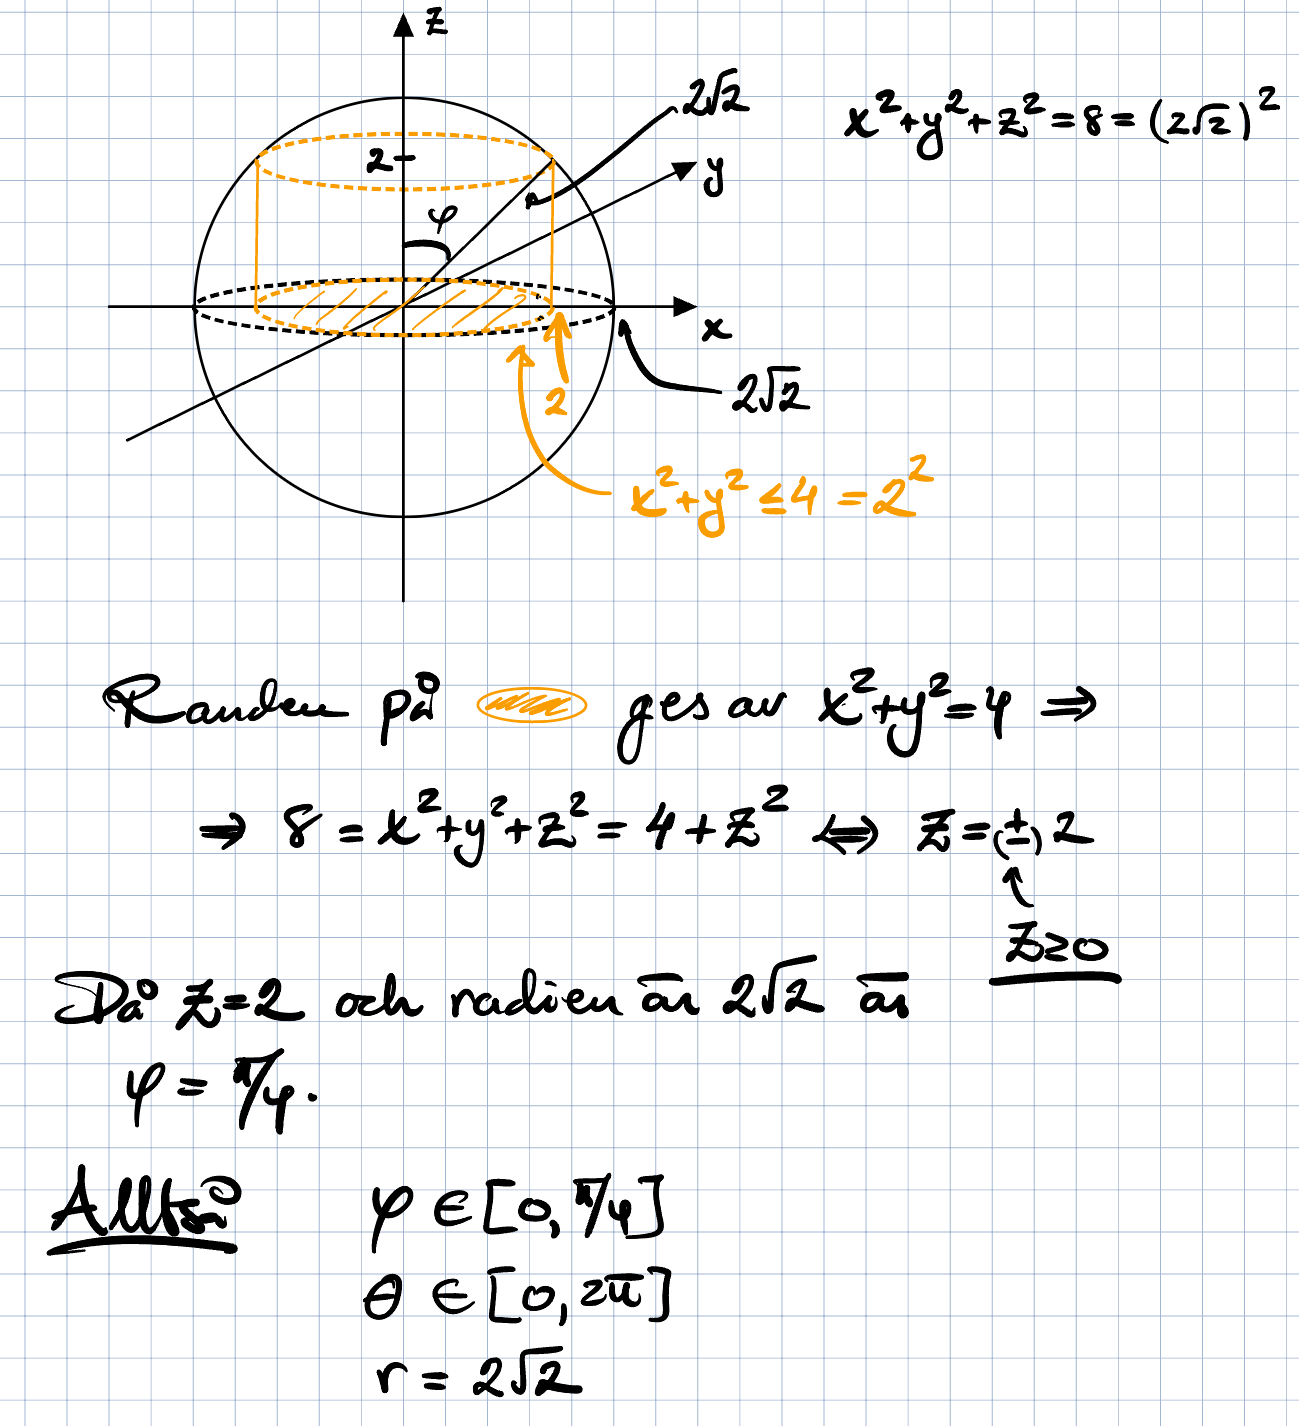 z
2√2
x²+y²+z²=8=(2√2)²
2
y
φ
x
2√2
2
x²+y²≤4=2²
Randen på ges av x²+y²=4 ⇒
⇒ 8=x²+y²+z²=4+z² ⇔ z=(±)2
z≥0
Då z=2 och radien är 2√2 är
φ=π/4.
Alltså φ∈[0,π/4]
θ∈[0,2π]
r=2√2